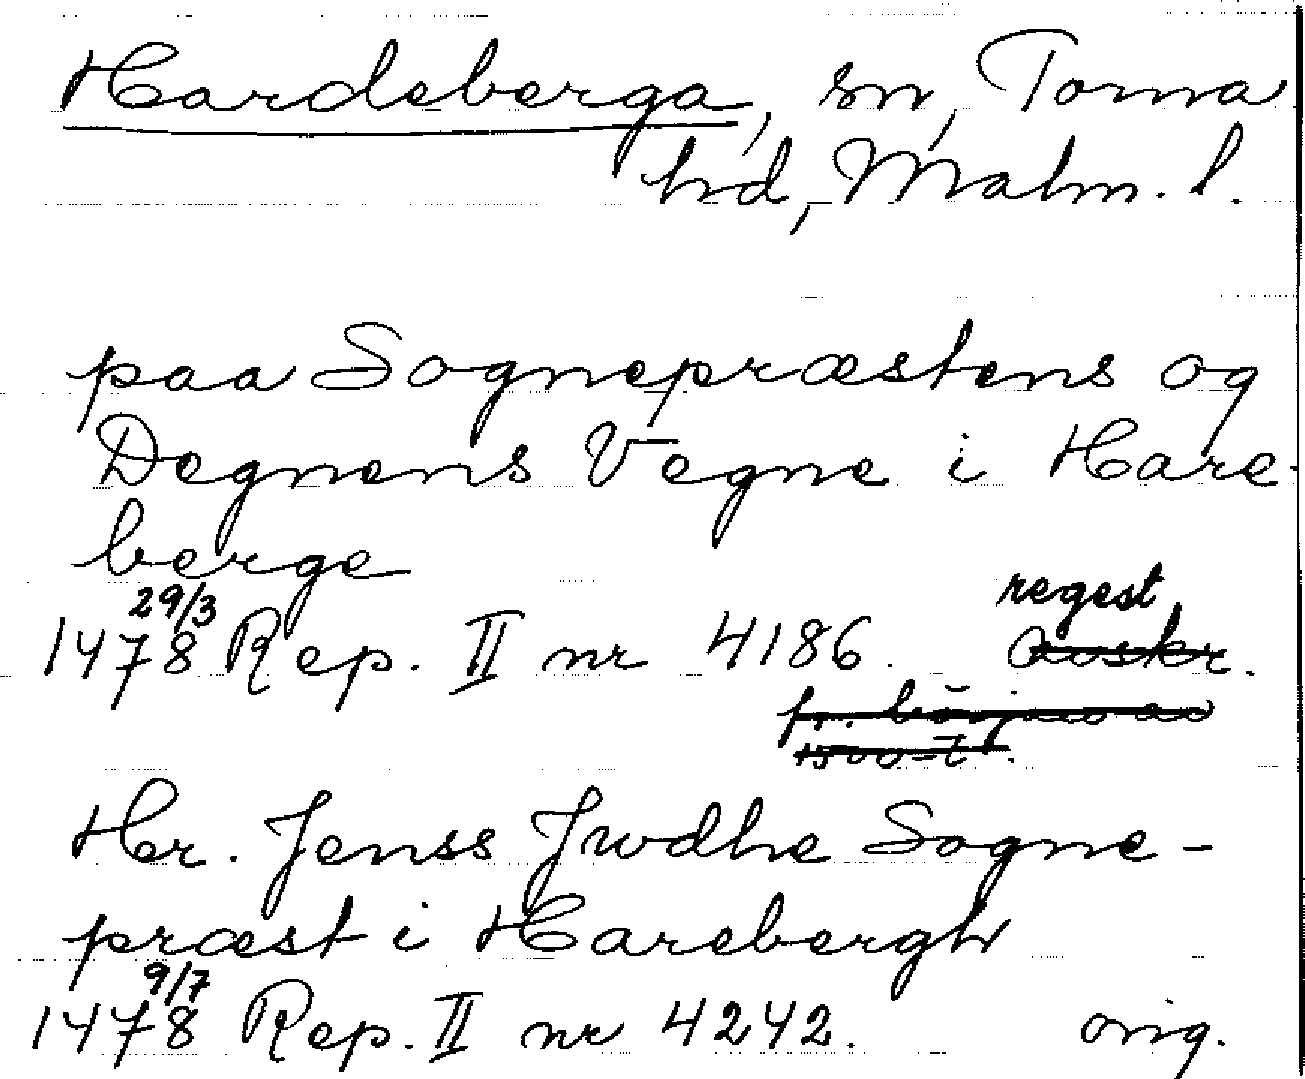 Hardeberga, sn, Torna
hd, Malm. l.
paa Sognepræstens og
Degnens Vegne i Hare-
berge
29/3 regest
1478 Rep. II nr 4186. Avskr.
fr. början av
1500-t.
Hr. Jenss Jwdhe Sogne-
præst i Harebergh
9/7
1478 Rep. II nr 4242. orig.